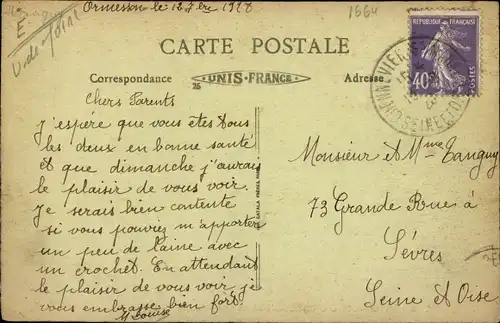 Ormesson le 12 7bre 1928
1664
E
CARTE POSTALE
Correspondance
UNIS-FRANCE
Adresse
25
REPUBLIQUE FRANÇAISE
40c
CHENNEVIERES
SEINE-ET-OISE
Chers Parents
J'espère que vous êtes tous
les deux en bonne santé
et que dimanche j'aurais
le plaisir de vous voir.
Je serais bien contente
si vous pouviez m'apporter
un peu de laine avec
un crochet. En attendant
le plaisir de vous voir je
vous embrasse bien fort.
M Louise
CATALA FRÈRES
Monsieur et Mme Tanguy
73 Grande Rue à
Sévres
Seine et Oise